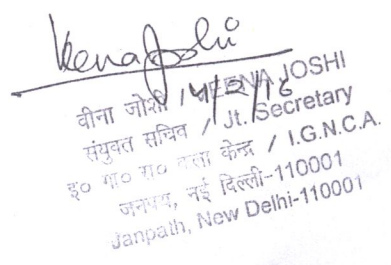 Veena Joshi
14/2/18
वीना जोशी / VEENA JOSHI
संयुक्त सचिव / Jt. Secretary
इ० गा० रा० कला केन्द्र / I.G.N.C.A.
जनपथ, नई दिल्ली-110001
Janpath, New Delhi-110001